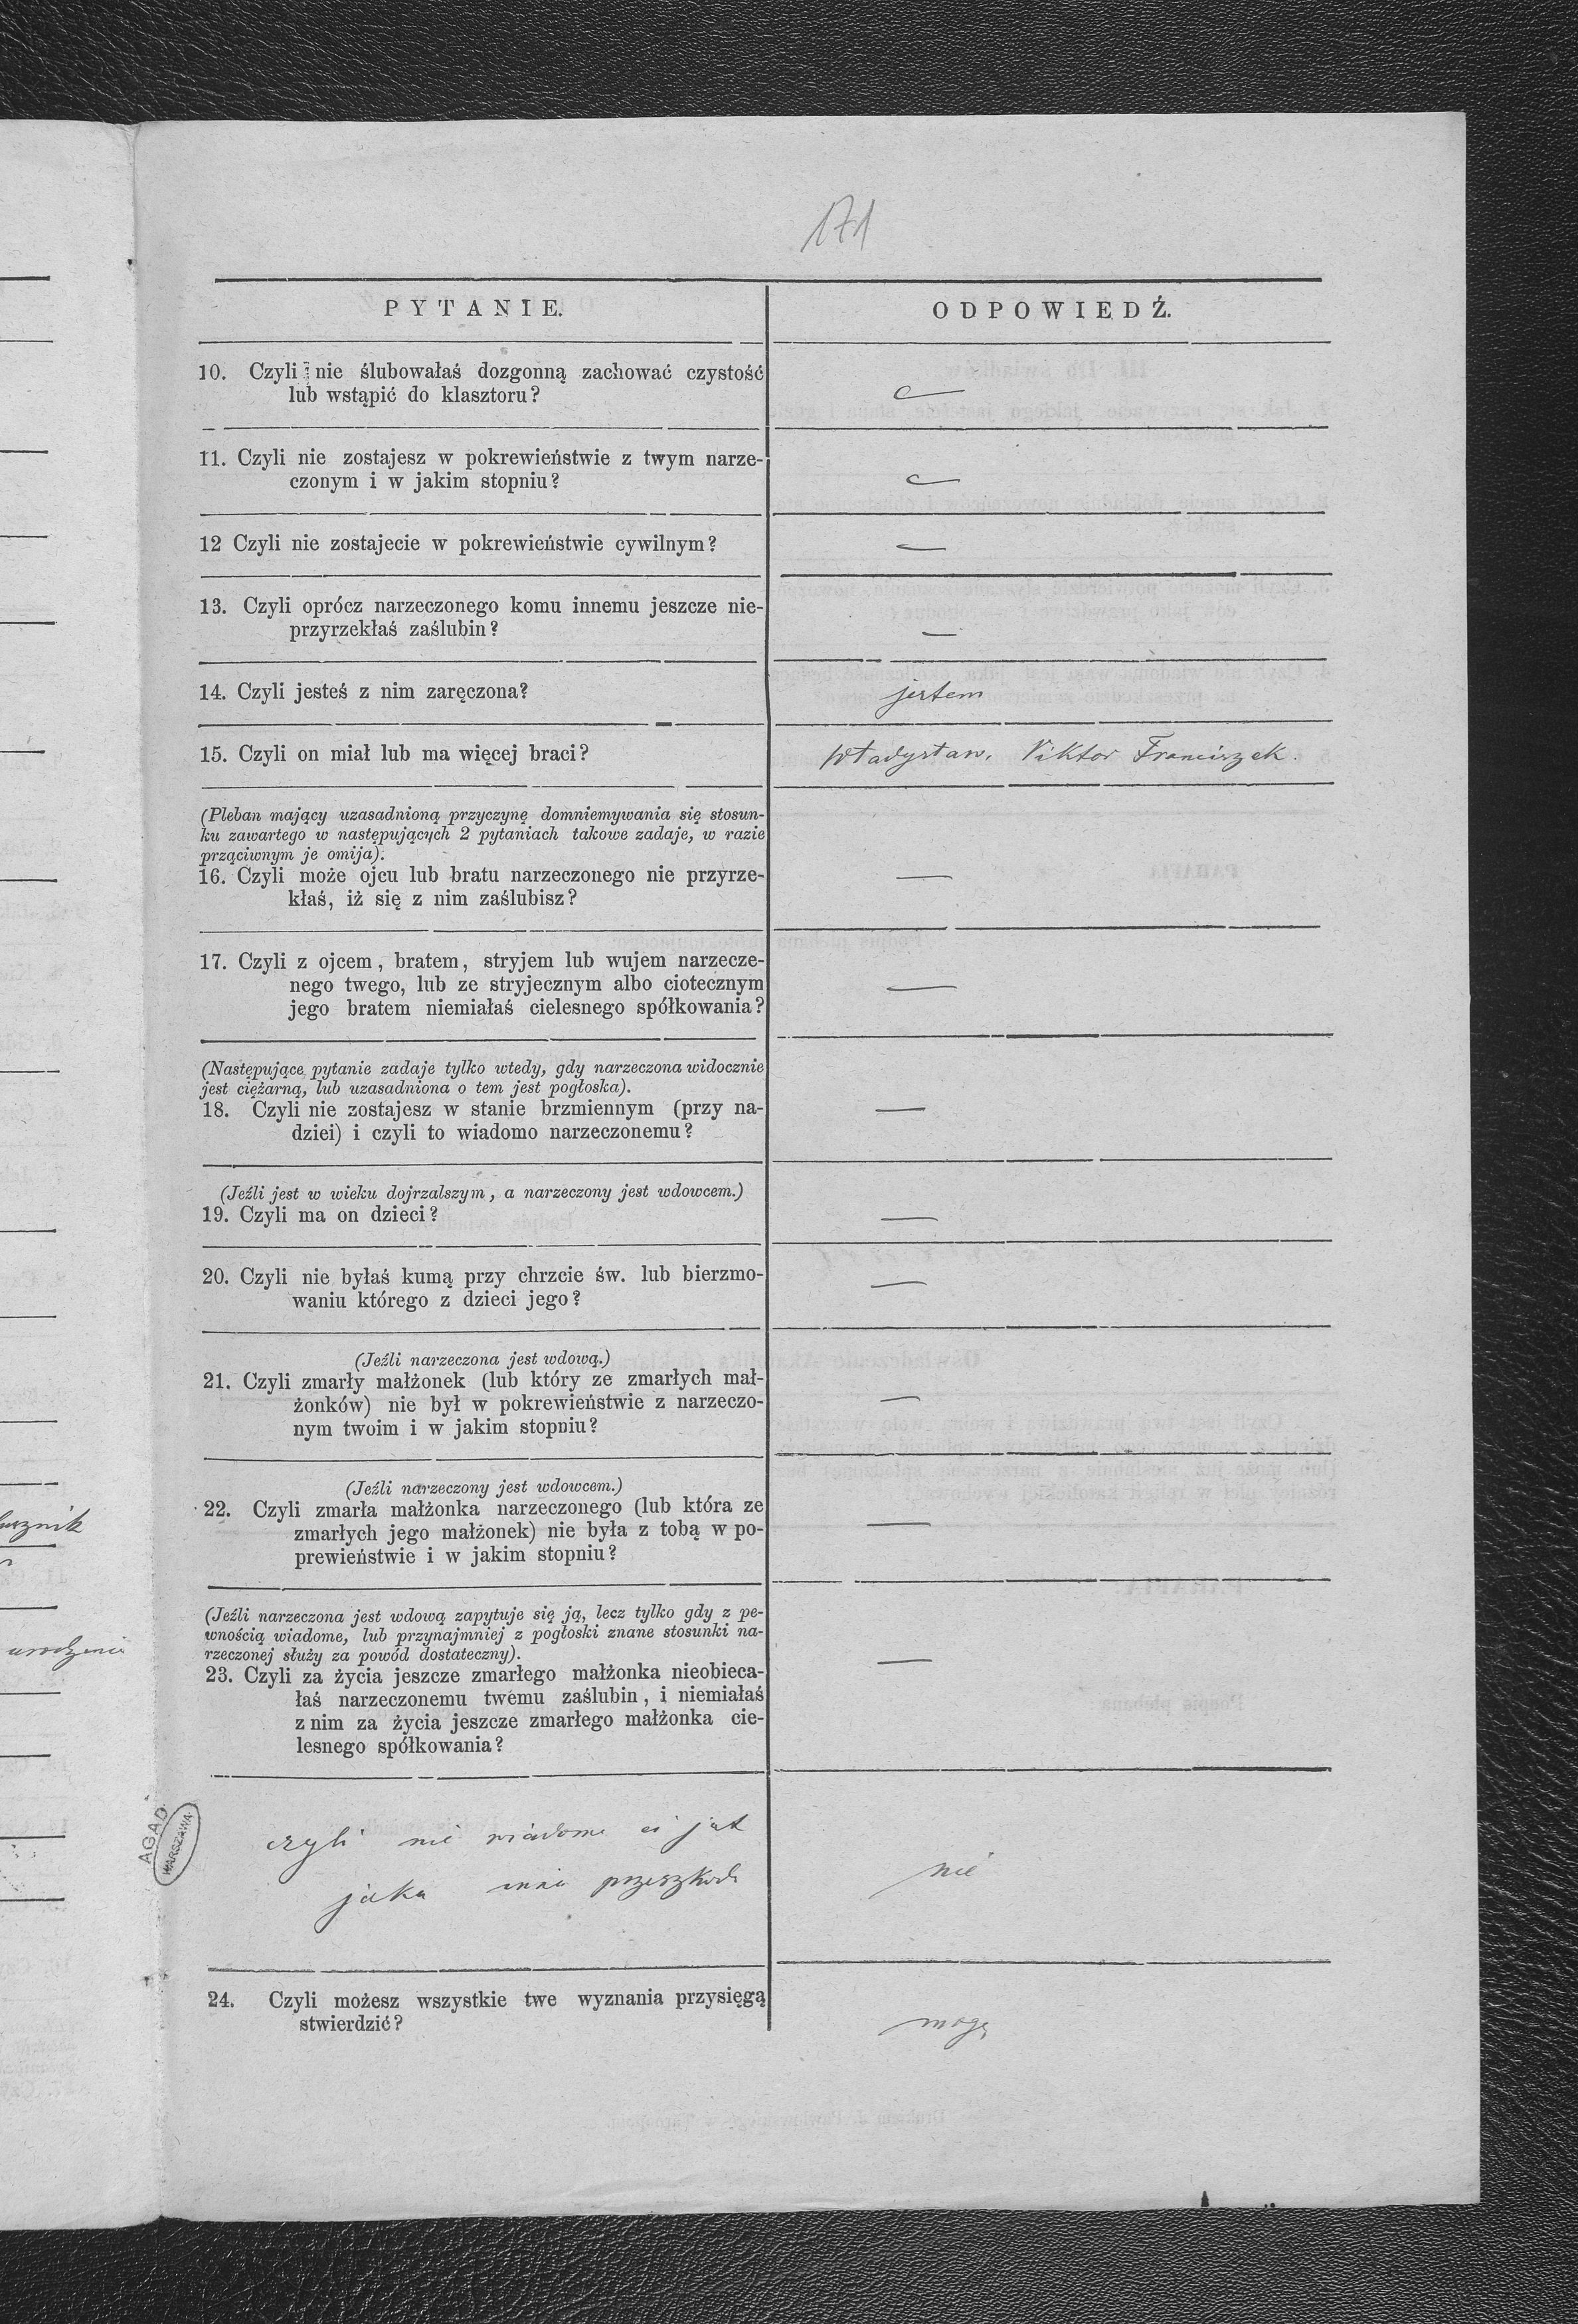 171
PYTANIE.
ODPOWIEDŹ.
10. Czyli nie ślubowałaś dozgonną zachować czystość
lub wstąpić do klasztoru?
—
11. Czyli nie zostajesz w pokrewieństwie z twym narze-
czonym i w jakim stopniu?
—
12 Czyli nie zostajecie w pokrewieństwie cywilnym?
—
13. Czyli oprócz narzeczonego komu innemu jeszcze nie-
przyrzekłaś zaślubin?
—
14. Czyli jesteś z nim zaręczona?
jestem
15. Czyli on miał lub ma więcej braci?
Władysław, Viktor Franciszek.
(Pleban mający uzasadnioną przyczynę domniemywania się stosun-
ku zawartego w następujących 2 pytaniach takowe zadaje, w razie
prząciwnym je omija).
16. Czyli może ojcu lub bratu narzeczonego nie przyrze-
kłaś, iż się z nim zaślubisz?
—
17. Czyli z ojcem, bratem, stryjem lub wujem narzecze-
nego twego, lub ze stryjecznym albo ciotecznym
jego bratem niemiałaś cielesnego spółkowania?
—
(Następujące pytanie zadaje tylko wtedy, gdy narzeczona widocznie
jest ciężarną, lub uzasadniona o tem jest pogłoska).
18. Czyli nie zostajesz w stanie brzmiennym (przy na-
dziei) i czyli to wiadomo narzeczonemu?
—
(Jeźli jest w wieku dojrzalszym, a narzeczony jest wdowcem.)
19. Czyli ma on dzieci?
—
20. Czyli nie byłaś kumą przy chrzcie św. lub bierzmo-
waniu którego z dzieci jego?
—
(Jeźli narzeczona jest wdową.)
21. Czyli zmarły małżonek (lub który ze zmarłych mał-
żonków) nie był w pokrewieństwie z narzeczo-
nym twoim i w jakim stopniu?
—
(Jeźli narzeczony jest wdowcem.)
22. Czyli zmarła małżonka narzeczonego (lub która ze
zmarłych jego małżonek) nie była z tobą w po-
prewieństwie i w jakim stopniu?
—
(Jeźli narzeczona jest wdową zapytuje się ją, lecz tylko gdy z pe-
wnością wiadome, lub przynajmniej z pogłoski znane stosunki na-
rzeczonej służy za powód dostateczny).
23. Czyli za życia jeszcze zmarłego małżonka nieobieca-
łaś narzeczonemu twemu zaślubin, i niemiałaś
z nim za życia jeszcze zmarłego małżonka cie-
lesnego spółkowania?
—
czyli nie wiadome ci jest
jaka inna przeszkoda
nie
24. Czyli możesz wszystkie twe wyznania przysięgą
stwierdzić?
mogę
A.G.A.D.
WARSZAWA
urodzenia